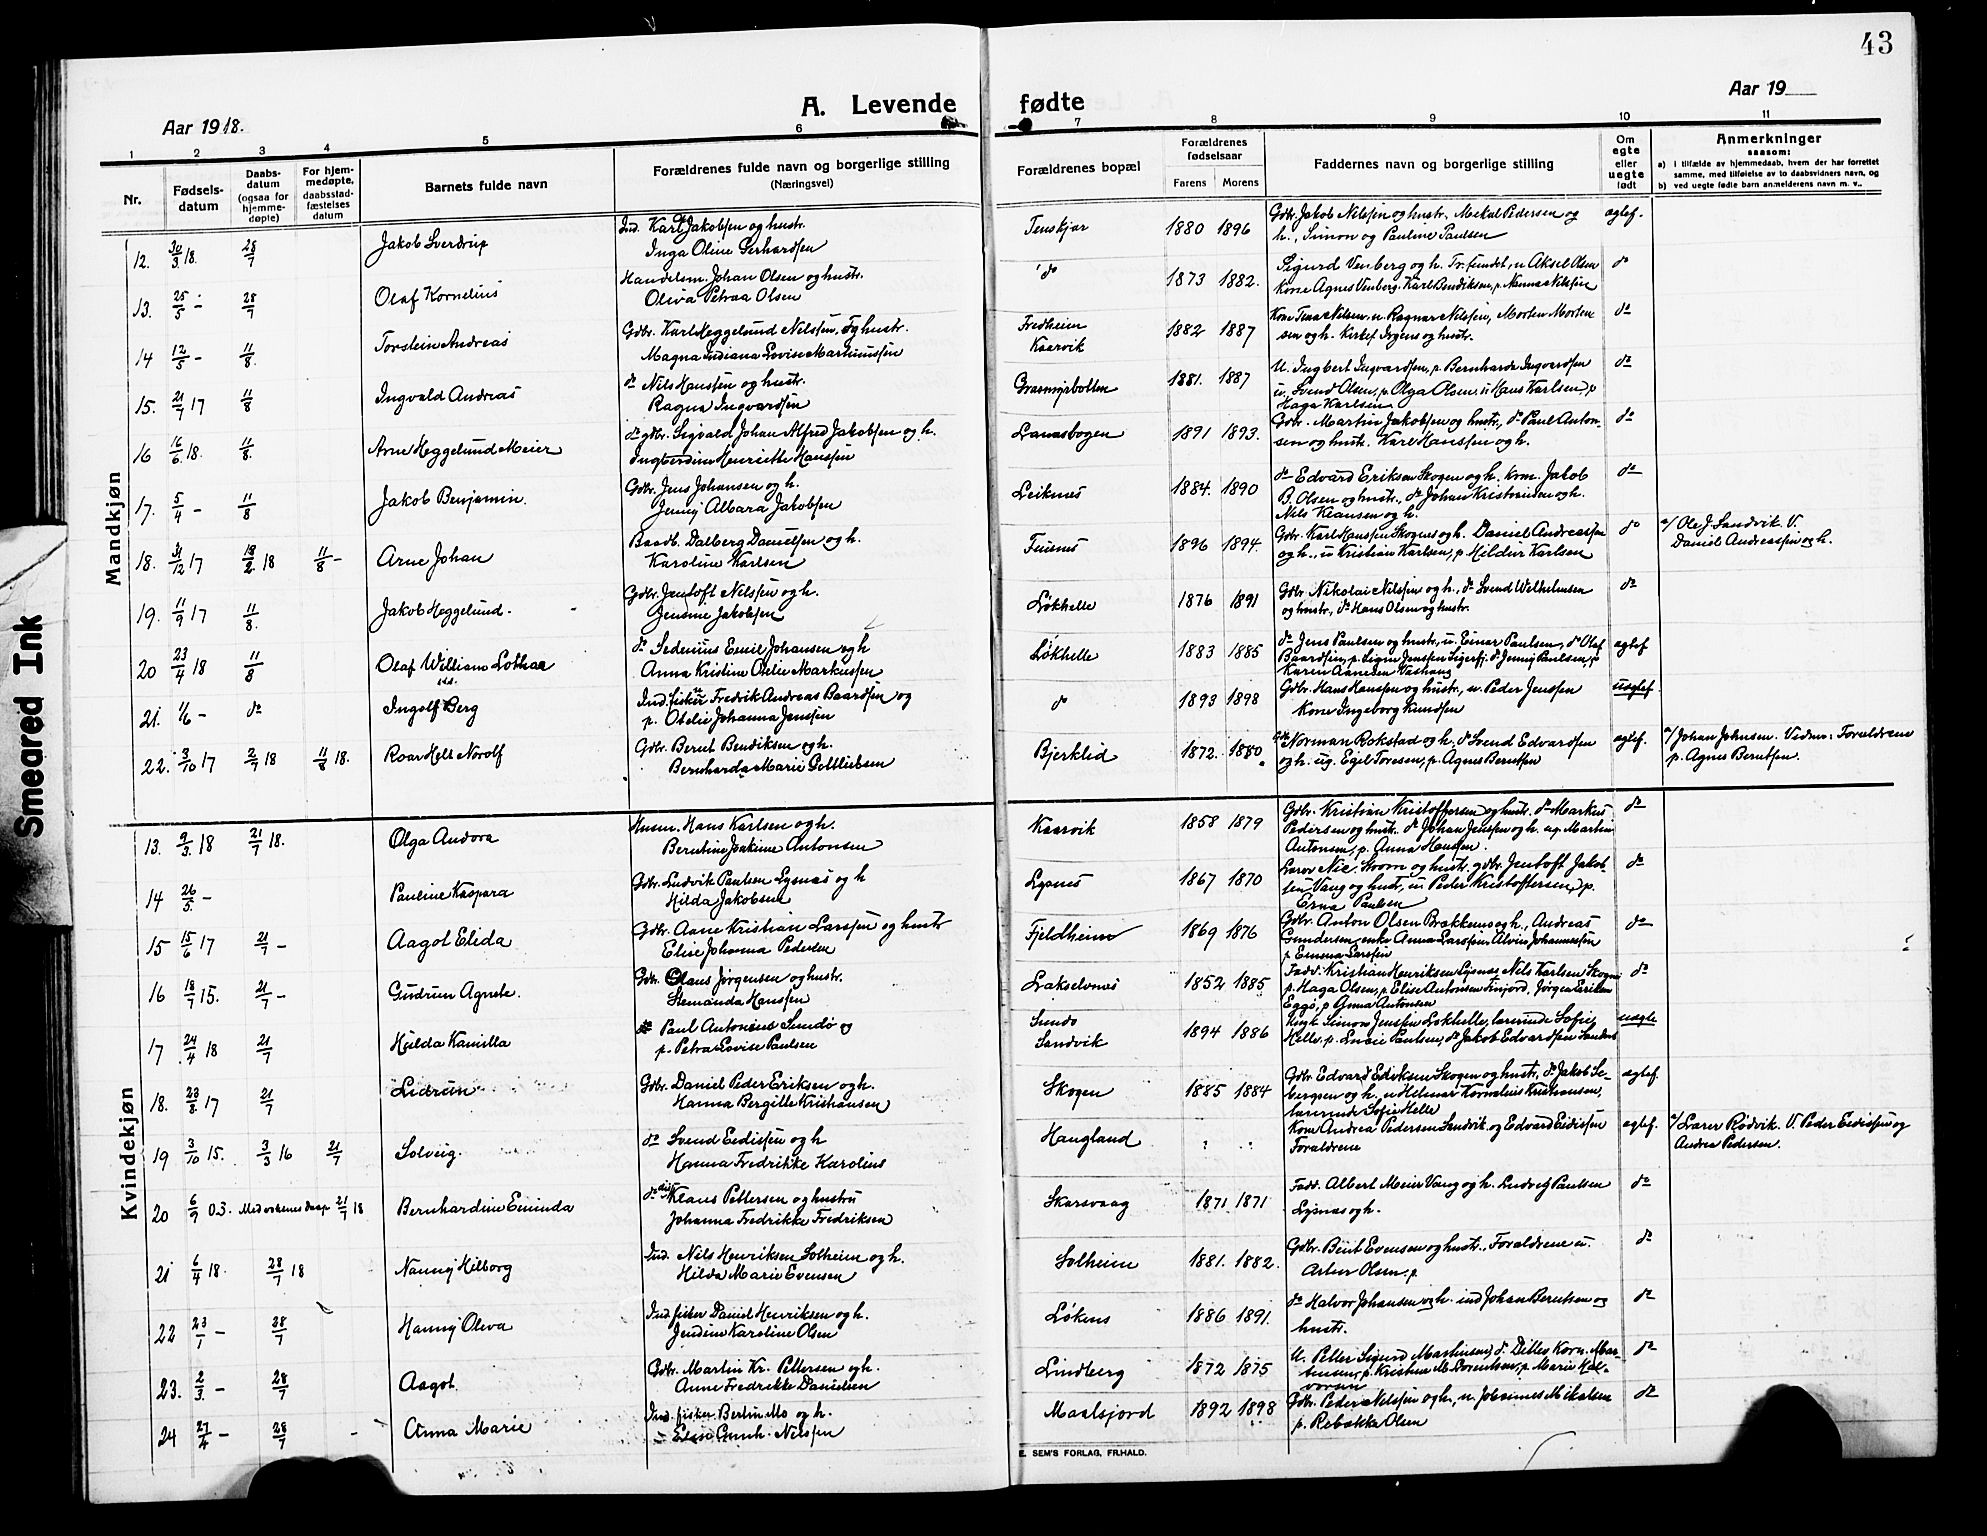 43
A. Levende fødte
Aar 1918.
Aar 19
1 2 3 4 5 6 7 8 9 10 11
Nr.
Fødsels-
datum
Daabs-
datum
(ogsaa for
hjemme-
døpte)
For hjem-
medøpte,
daabsstad-
fæstelses
datum
Barnets fulde navn
Forældrenes fulde navn og borgerlige stilling
(Næringsvei)
Forældrenes bopæl
Forældrenes
fødselsaar
Farens Morens
Faddernes navn og borgerlige stilling
Om
egte
eller
uegte
født
Anmerkninger
saasom:
a) i tilfælde av hjemmedaab, hvem der har forrettet
samme, med tilføielse av to daabsvidners navn, og
b) ved uegte fødte barn anmelderens navn m. v..
Mandkjøn
12. 30/3 18. 28/7 Jakob Sverdrup
Ind. Karl Jakobsen og hustr.
Inga Oline Gerhardsen
Tenskjær 1880 1896
Gdbr. Jakob Nilssen og hustr. Mekal Pedersen og
h., Simon og Pauline Paulsen
ægtef.
13. 25/5 - 28/7 Olaf Kornelius
Handelsm. Johan Olsen og hustr.
Oliva Petraa Olsen
do 1873 1882.
Sigurd Venberg og h. Aksel Olsen
Kone Agnes Venberg. Karl Bendiksen, p. Nanna Nilssen
do
14 12/5 - 11/8. Torstein Andreas
Gdbr. Karl Heggelund Nilssen, og hustr.
Magna Indiana Lovise Martinussen
Fredheim
Kaarvik
1882 1887
Kone Tina Nilsen, u. Ragnar Nilssen, Morten Morten
sen og h. Kirket. og hustr.
do
15. 21/7 17 11/8 Ingvald Andreas
do Nils Hanssen og hustr.
Ragna Ingvardsen
Græsmyrbotten 1881. 1887
U. Ingbert Ingvardsen, p. Bernharda Ingvardsen
u. Svend Olsen, p. Olga Olsen u Hans Karlsen, p
Haga Karlsen
do
16 16/6 18. 11/8. Arne Heggelund Meier
do gdbr. Sigvald Johan Alfred Jakobsen og h.
Ingberdine Henriette Hanssen
Lanasbogen 1891 1893.
Gdbr. Martin Jakobsen og hustr, do Paul Anton-
sen og hustr. Karl Hanssen og h.
do
17. 5/4 - 11/8 Jakob Benjamin.
Gdbr. Jens Johansen og h.
Jenny Albara Jakobsen
Leiknes 1884. 1890
do Edvard Eriksen Skogen og h. Jakob
B. Olsen og hustr., do Johan Kristiansen og h.
Nils Klausen og h.
do
18. 31/12 17 18/2 18 11/8 - Arne Johan
Baadb. Dalberg Danielsen og h.
Karoline Karlsen
1896 1894.
Gdbr. Karl Hanssen Skognes og h. Daniel Andreassen
og h., u Kristian Karlsen, p. Hildur Karlsen
do
a/ Ole J. Sandvik. V.
Daniel Andreassen og h.
19. 11/9 17 11/8. Jakob Heggelund.
Gdbr. Jentoft Nilssen og h.
Jensine Jakobsen
Løkhelle 1876 1891
Gdbr Nikolai Nilssen og h., do Svend Wilhelmsen
og hustr., do Hans Olsen og hustr.
do
20 23/4 18 11/8 Olaf William Lothar
do Sedenius Emil Johansen og h
Anna Kristine Otilie Markussen
Løkhelle 1883 1885
do Jens Paulsen og hustr., u. Einar Paulsen, do Olaf
Baardsen, p. Signe Jenssen. do Jenny Paulsen, p
ægtef
21. 1/6 - do Ingolf Berg
Ind. fisker Fredrik Andreas Baardsen og
p. Otelie Johanna Jenssen
do 1893 1898
Gdbr. Hans Hanssen og hustr., u. Peder Jenssen
Kone Ingeborg Knudsen
uægtef.
22. 3/10 17 2/7 18 11/8 18. Roar Helt Norolf
Gdbr. Bernt Bendiksen og h.
Bernharda Marie Gottliebsen
Bjerklid 1872. 1880
Norman Rokstad og h. do Svend Edvardsen
og h. ug. Egil Toresen, p. Agnes Berntsen
ægtef.
a/ Johan Johnsen. Vidner: Forældrene
p. Agnes Berntsen.
Kvindekjøn
13. 9/3. 18 21/7 18. Olga Andora
Husm. Hans Karlsen og h.
Berntine Joakime Antonsen
Kaarvik 1858 1879
Gdbr. Kristian Kristoffersen og hustr. do Markus
Pedersen og hustr. do Johan Jenssen og h. ug. Martin
Antonsen, p. Anna Hanssen.
do
14 26/5. - Pauline Kaspara
Gdbr. Ludvik Paulsen Lysnes og h
Hilda Jakobsen
Lysnes 1867 1870
Lærer Nic. Skoom og hustr. gdbr. Jentoft Jakob-
sen Vang og hustr., u. Peder Kristoffersen, p.
Erna Paulsen
do
15 15/6 17 21/7 - Aagot Elida
Gdbr. Aane Kristian Larssen og hustr
Elise Johanna Pedersen
Fjeldheim 1869 1876
Gdbr. Anton Olsen Brækkenes og h., Andreas
Gundersen, enke Anna Larssen, Alvin Johannessen
p Emma Larssen
do
16 18/7 15. 21/7 - Gudrun Agnete.
Gdbr. Claus Jørgensen og hustr.
Hanssen
Lakselvnes 1852 1885
Fadd. Kristian Henriksen Lysnes, Nils Karlsen Skognes
p. Haga Olsen, p. Elise Antonsen, Jørgen Eriksen
Eggø, p Anna Antonsen
do
17 24/4 18 21/7 Hilda Kamilla
Paul Antonius Sundø og
p. Petra Lovise Paulsen
Sundø
Sandvik
1894 1886
Ungk. Simon Jenssen Løkhelle, lærerinde Sofie
Helle, p. Paulsen, do Jakob Edvardsen Sandvik
uægte
18. 23/8. 17 21/7 Lidrun
Gdbr. Daniel Peder Eriksen og h.
Hanna Bergitte Kristiansen
Skogen 1885 1884
Gdbr Edvard Eriksen Skogen og hustr., do Jakob Se-
bergsen og h., u Helmar Kornelius Kristiansen,
lærerinde Sofie Helle
ægtef.
19 3/10 15. 3/3 16 21/7 Solveig.
do Svend Eedissen og h
Hanna Fredrikke Karolius
Haugland
Kone Andrea Pedersen Sandvik og Edvard Eidissen
Forældrene
ægtef.
a/ Lærer Rødvik. V. Peder Eidissen og
Andrea Pedersen.
20 6/9 03. Med voksenes daap 21/7 18 Bernhardine Eminda
do Klaus Pettersen og hustru
Johanna Fredrikke Fredriksen
Skarsvaag 1871 1871
Fadd. Albert Meier Vang og h. Ludvig Paulsen
Lysnes og h.
do
21 6/4 18. 28/7 18 Nanny Hilborg
Ind. Nils Henriksen Solheim og h.
Hilda Marie Evensen
Solheim 1881. 1882.
Gdbr. Bernt Evensen og hustr., Forældrene u.
Artur Olsen. p
do
22 23/1 - 28/7 Hanny Oliva
Ind. fisker Daniel Henriksen og h.
Jendine Karoline Olsen
Løknes 1886 1891.
do Halvor Johansen og h. ind Johan Berntsen og
hustr.
do
23. 2/3. - 28/7 Aagot.
Gdbr. Martin Kr. Pettersen og h.
Anne Fredrikke Danielsen
Lindberg 1872 1875
U. Petter Sigurd Martinsen, d. Ditlev Korn. Mar-
tinsen, p. Kristine M. Lorentsen, p. Marie Hal-
vorsen
do
24 27/4 - 28/7 - Anna Marie
Ind. fisker Bertin Mo og h.
Elise Gunh. Nilssen
Maalsjord 1892 1898
Gdbr. Peder Nilssen og h., u. Johannes Mikalsen
p. Rebekka Olsen
do
E. SEM'S FORLAG, FR.HALD.
Smeared Ink